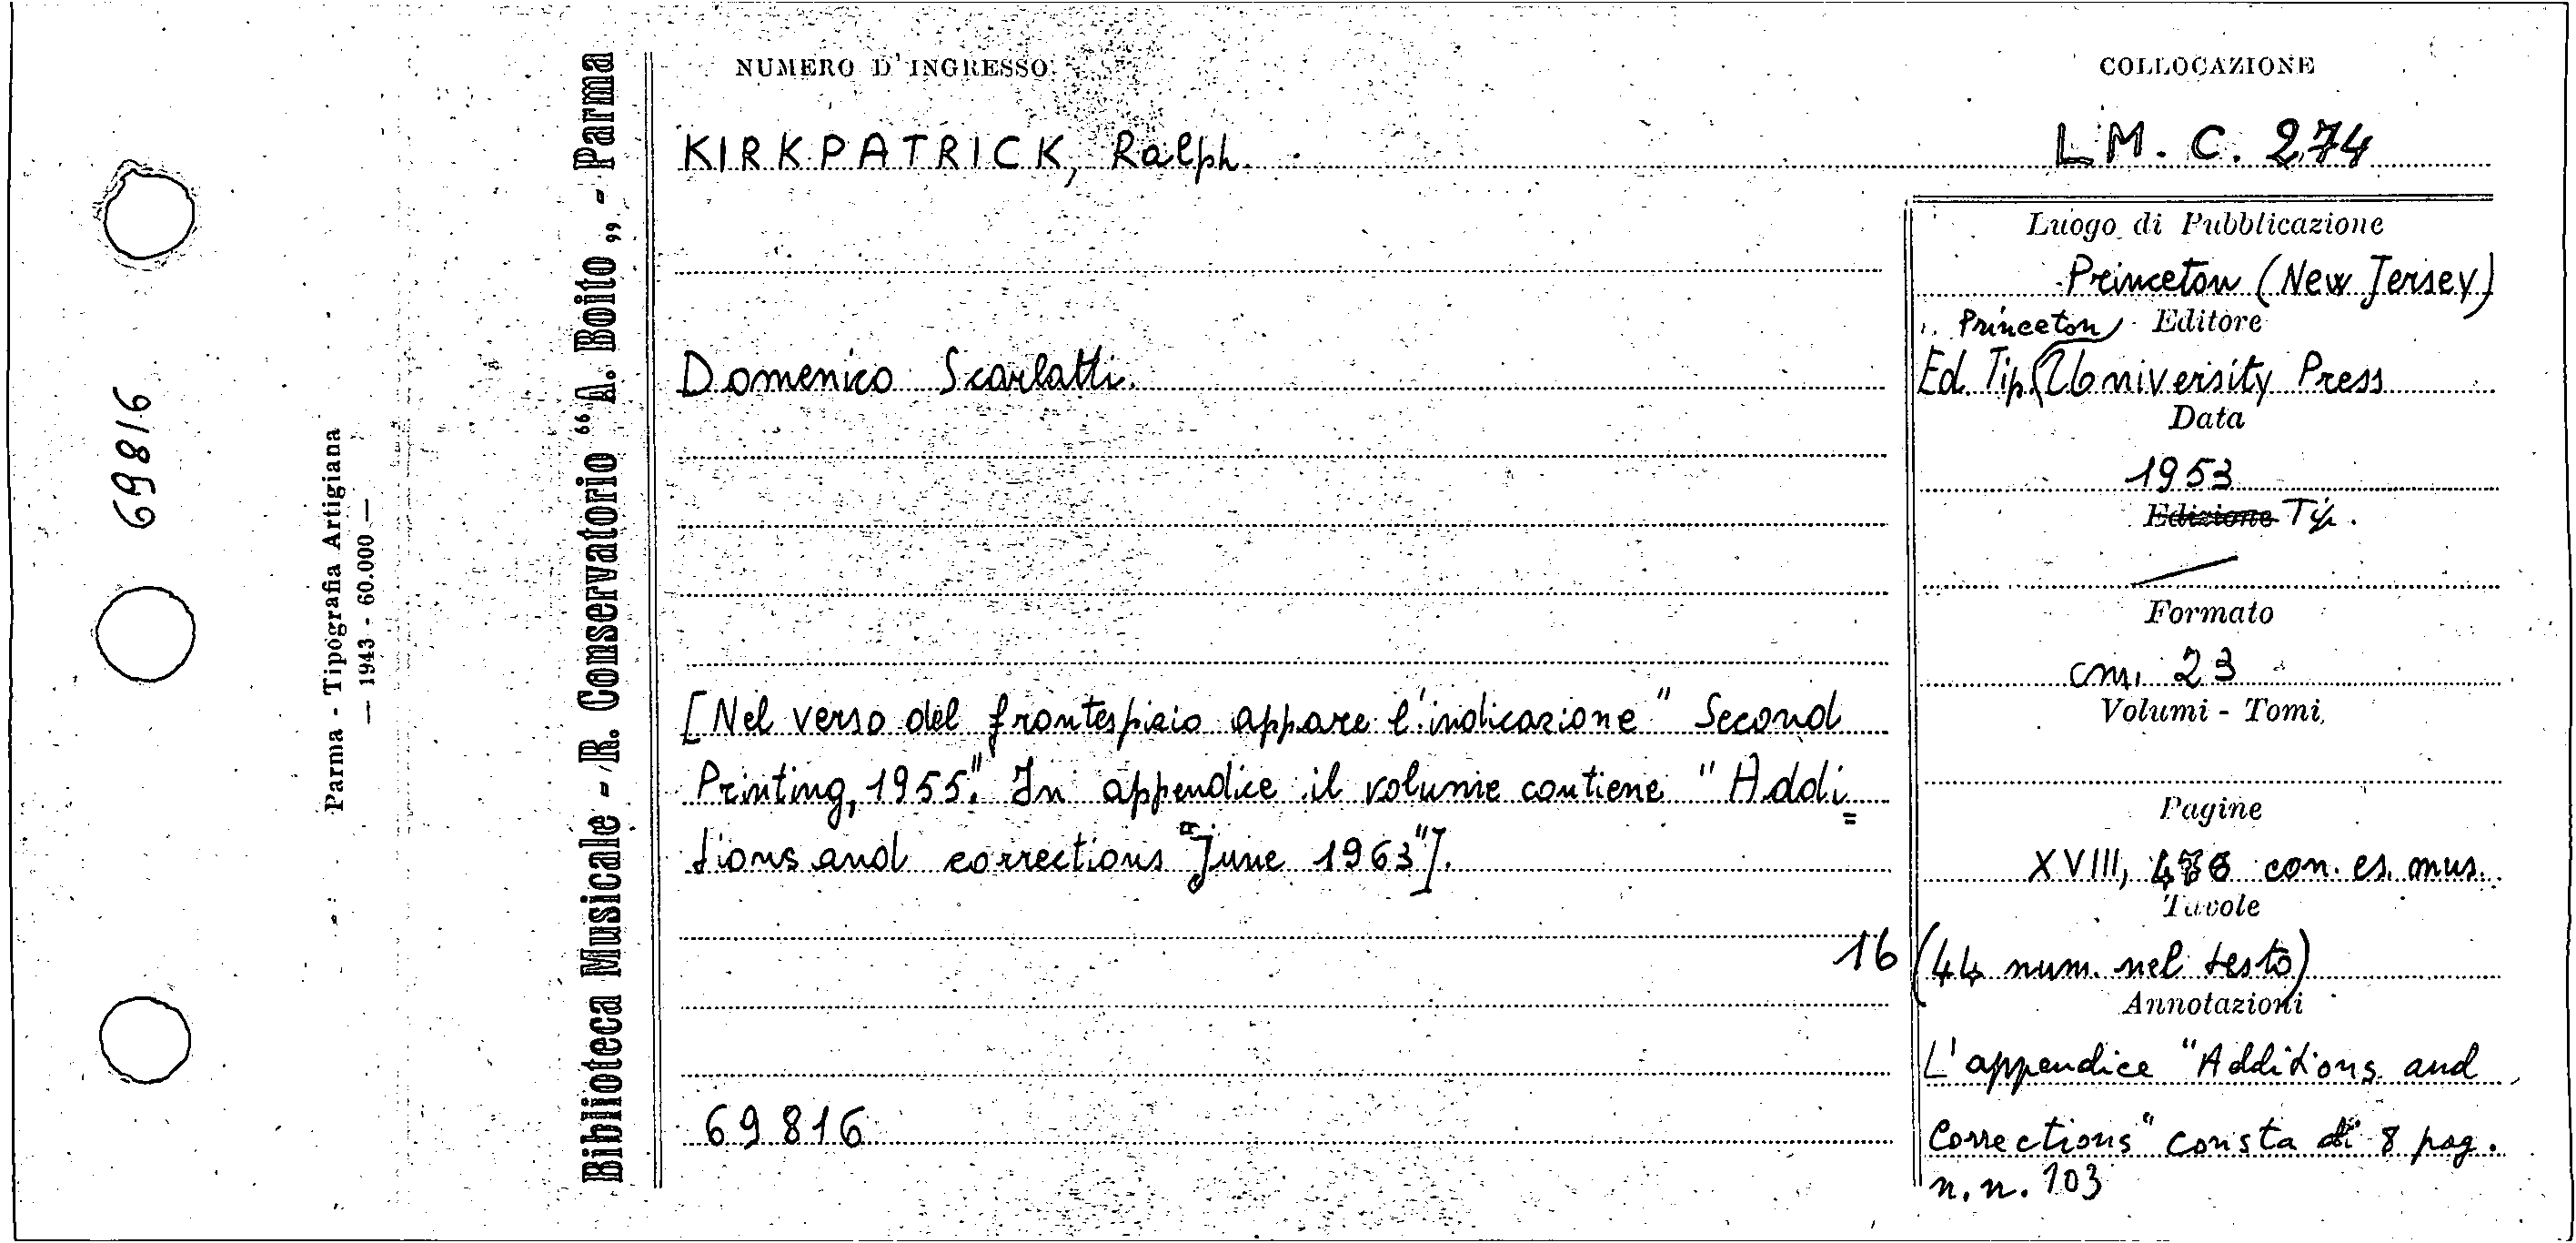 69816
Parma - Tipografia Artigiana
— 1943 - 60.000 —
Biblioteca Musicale - R. Conservatorio “A. Boito„ - Parma
NUMERO D'INGRESSO
COLLOCAZIONE
KIRKPATRICK, Ralph.
L M. C. 274
Domenico Scarlatti.
[Nel verso del frontespizio appare l'indicazione "Second
Printing, 1955". In appendice il volume contiene "Addi=
tions and corrections "June 1963"].
69816
Luogo di Pubblicazione
Princeton (New Jersey)
Editore
Princeton
Ed. Tip. University Press
Data
1953
Edizione Tip.
Formato
cm. 23
Volumi - Tomi
Pagine
XVIII, con es. mus.
Tavole
16 (44 num. nel testo)
Annotazioni
L'appendice "Additions and
Corrections" consta di 8 pag.
n.n. 103